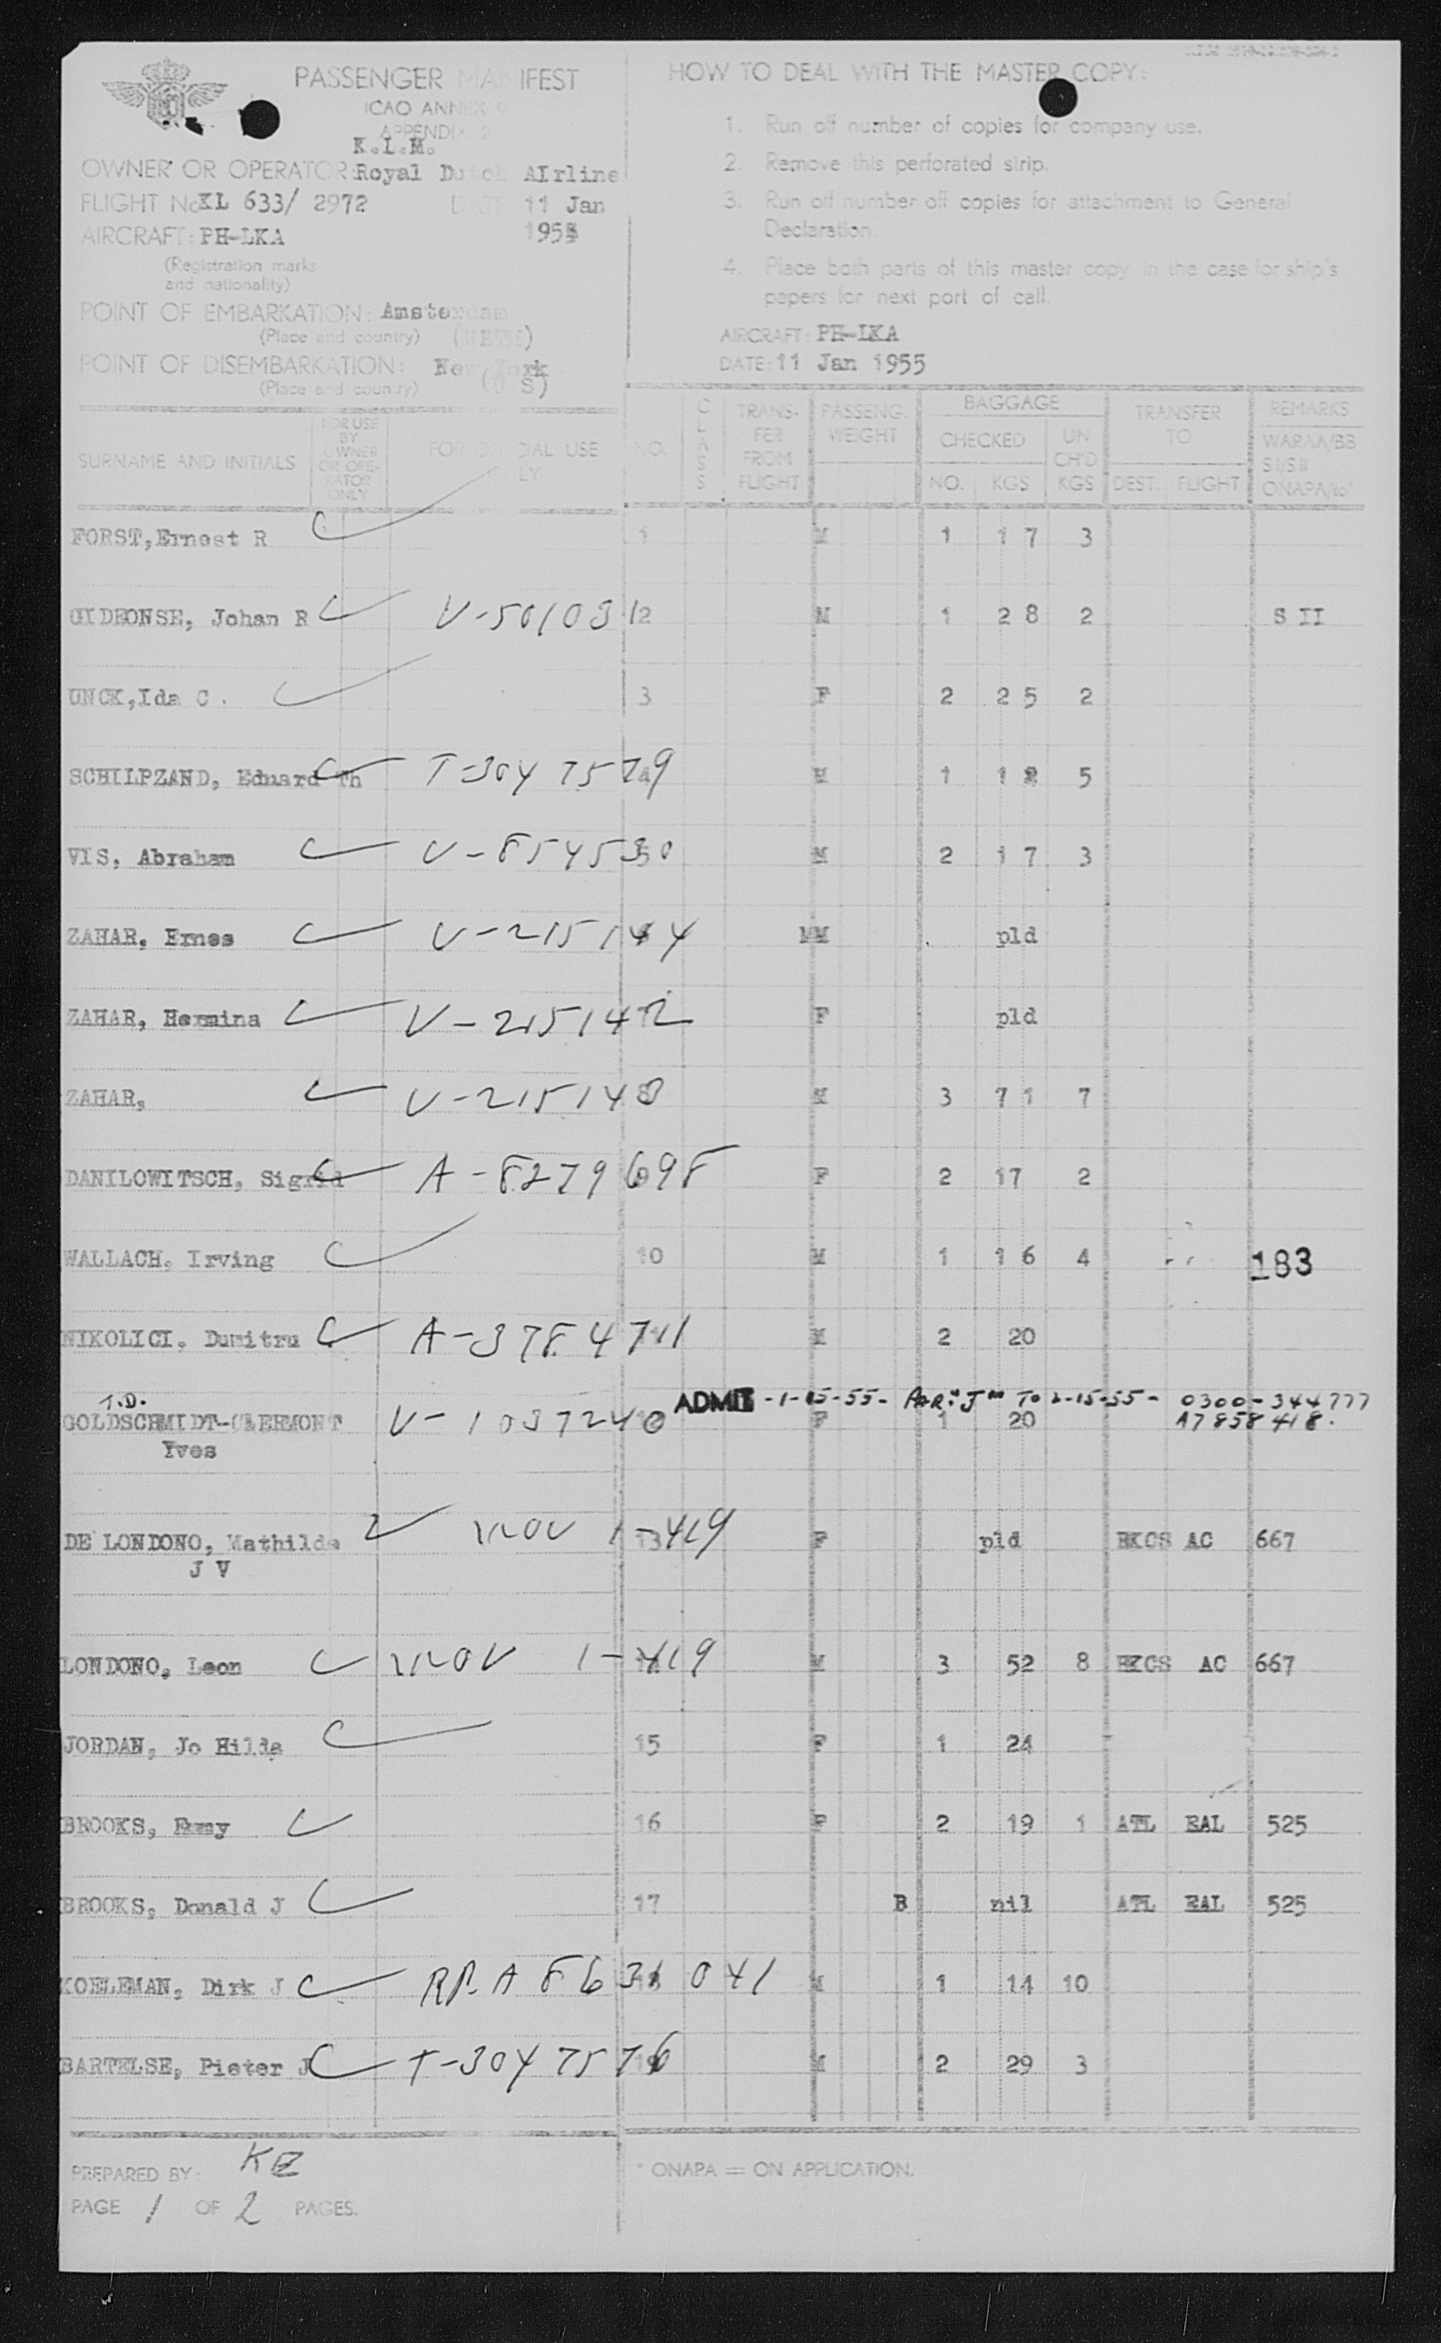 PASSENGER MANIFEST
ICAO ANNEX 9
APPENDIX 2
K.L.M.
OWNER OR OPERATOR: Royal Dutch AIrline
FLIGHT No KL 633/ 2972 DATE 11 Jan
AIRCRAFT: PH-LKA 1955
(Registration marks
and nationality)
POINT OF EMBARKATION: Amsterdam
(Place and country)
POINT OF DISEMBARKATION: New York
(Place and country) (U S)
HOW TO DEAL WITH THE MASTER COPY:
1. Run off number of copies for company use.
2. Remove this perforated strip.
3. Run off number off copies for attachment to General
Declaration.
4. Place both parts of this master copy in the case for ship's
papers for next port of call.
AIRCRAFT: PH-LKA
DATE: 11 Jan 1955
SURNAME AND INITIALS
FOR USE
BY
OWNER
OR OPE-
RATOR
ONLY
FOR OFFICIAL USE
ONLY
NO.
CLASS
TRANS-
FER
FROM
FLIGHT
PASSENG.
WEIGHT
BAGGAGE
CHECKED
NO. KGS
UN
CH'D
KGS
TRANSFER
TO
DEST. FLIGHT
REMARKS
WARAA/BB
SI/SII
ONAPA/to*
FORST,Ernest R 1 M 1 17 3
GIDEONSE, Johan R V-501031 2 M 1 28 2 S II
UNCK,Ida C. 3 F 2 25 2
SCHILPZAND, Eduard Th T-3047579 4 M 1 18 5
VIS, Abraham V-854530 5 M 2 17 3
ZAHAR, Ernes V-215144 MM pld
ZAHAR, Hermina V-215142 F pld
ZAHAR, V-215143 M 3 71 7
DANILOWITSCH, Sigrid A-8279698 F 2 17 2
WALLACH, Irving 10 M 1 16 4 183
NIKOLICI, Dumitru A-3784711 M 2 20
T.D. ADMIT -1-15-55- PAR. "J" To 2-15-55- 0300-344777
GOLDSCHMIDT-CLERMONT V-1037240 F 1 20 A7858418.
Yves
DE LONDONO, Mathilde 13 1-419 F pld BKCS AC 667
J V
LONDONO, Leon 1-419 M 3 52 8 BKCS AC 667
JORDAN, Jo Hilda 15 F 1 24
BROOKS, 16 F 2 19 1 ATL EAL 525
BROOKS, Donald J 17 B nil ATL EAL 525
KOELEMAN, Dirk J RP.A 8631041 18 M 1 14 10
BARTELSE, Pieter J T-3047576 19 M 2 29 3
PREPARED BY: KE
PAGE 1 OF 2 PAGES.
* ONAPA = ON APPLICATION.